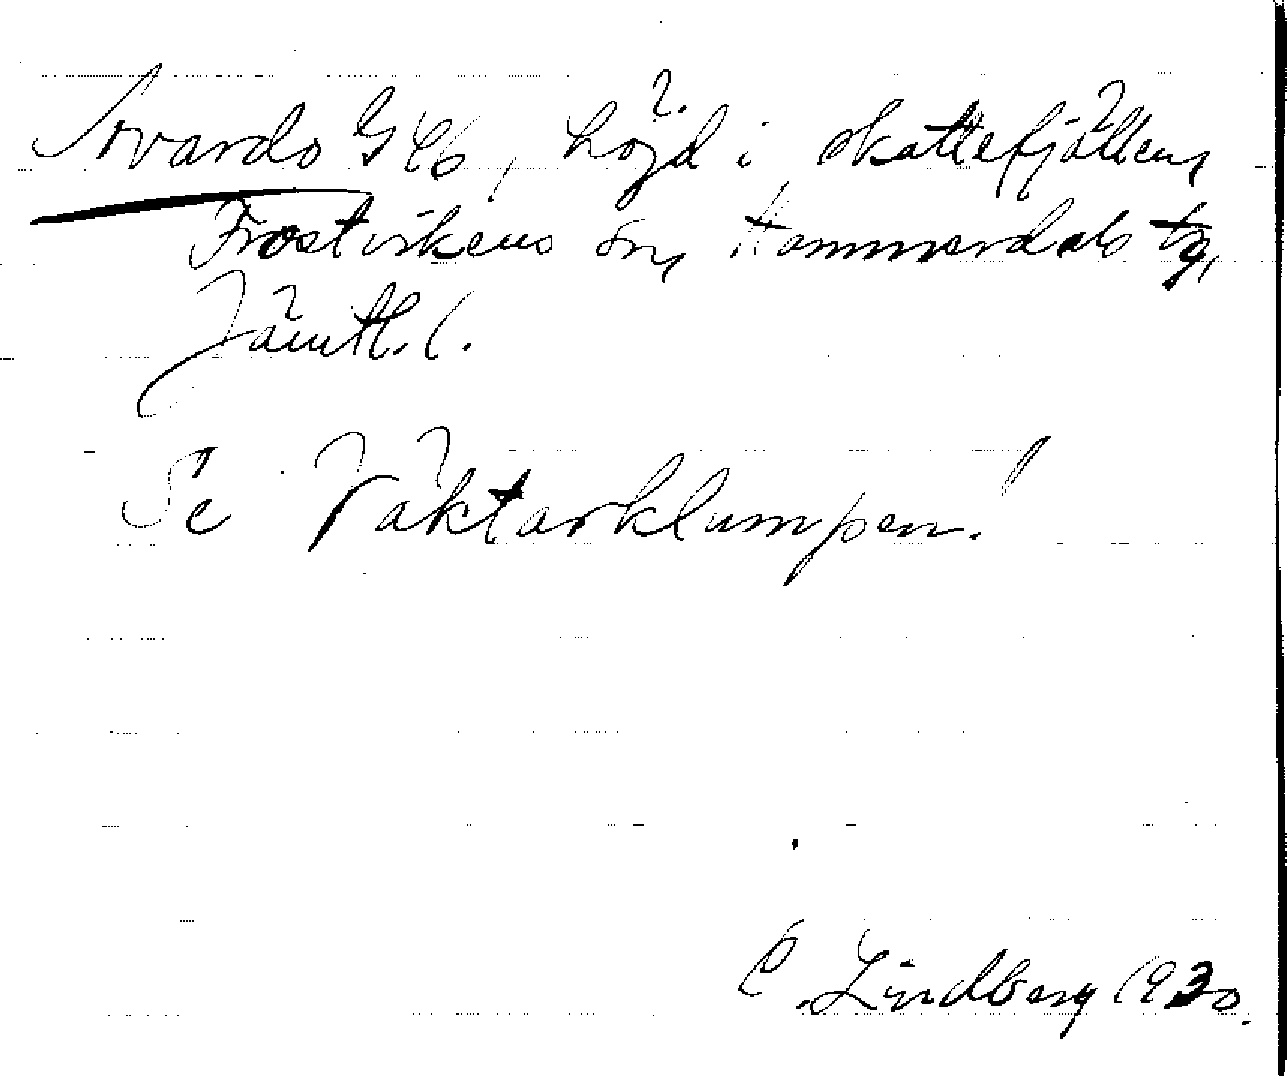 Arvardo GEB, höjd i skattefjällen,
Frostvikens sn, Hammerdals tg,
Jämtl. l.
Se Väktarklumpen!
C. Lindberg 1930.